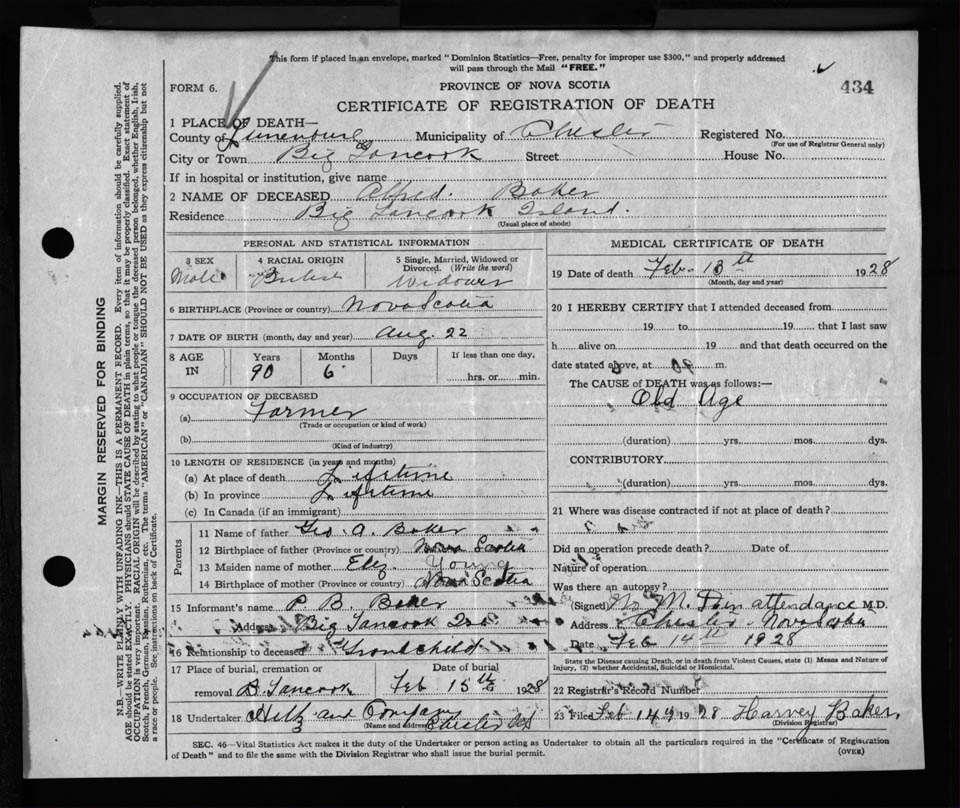 This form if placed in an envelope, marked "Dominion Statistics—Free, penalty for improper use $300," and properly addressed
will pass through the Mail "FREE."
434
FORM 6.
PROVINCE OF NOVA SCOTIA
CERTIFICATE OF REGISTRATION OF DEATH
1 PLACE OF DEATH—
County of Lunenburg Municipality of Chester Registered No.
(For use of Registrar General only)
City or Town Big Tancook Street House No.
If in hospital or institution, give name
2 NAME OF DECEASED Alfred. Baker
Residence Big Tancook Island.
(Usual place of abode)
PERSONAL AND STATISTICAL INFORMATION
3 SEX 4 RACIAL ORIGIN 5 Single, Married, Widowed or
Divorced. (Write the word)
Male British Widower
6 BIRTHPLACE (Province or country) Nova Scotia
7 DATE OF BIRTH (month, day and year) Aug. 22
8 AGE IN Years Months Days If less than one day,
90 6 hrs. or min.
9 OCCUPATION OF DECEASED
(a) Farmer
(Trade or occupation or kind of work)
(b)
(Kind of industry)
10 LENGTH OF RESIDENCE (in years and months)
(a) At place of death Lifetime
(b) In province Lifetime
(c) In Canada (if an immigrant)
Parents
11 Name of father Geo A. Baker
12 Birthplace of father (Province or country) Nova Scotia
13 Maiden name of mother Eliz Young
14 Birthplace of mother (Province or country) Nova Scotia
15 Informant's name P. B. Baker
Address Big Tancook Isd
16 Relationship to deceased Grandchild
17 Place of burial, cremation or Date of burial
removal B. Tancook Feb 15th 1928
18 Undertaker Hiltz and Company
(Name and address) Chester NS
MEDICAL CERTIFICATE OF DEATH
19 Date of death Feb. 13th 1928
(Month, day and year)
20 I HEREBY CERTIFY that I attended deceased from
19 to 19 that I last saw
h alive on 19 and that death occurred on the
date stated above, at m.
The CAUSE of DEATH was as follows:—
Old Age
(duration) yrs. mos. dys.
CONTRIBUTORY
(duration) yrs. mos. dys.
21 Where was disease contracted if not at place of death?
Did an operation precede death? Date of
Nature of operation
Was there an autopsy?
(Signed) No M. D in attendance M.D.
Address Chester Nova Scotia
Date Feb 14th 1928
State the Disease causing Death, or in death from Violent Causes, state (1) Means and Nature of
Injury, (2) whether Accidental, Suicidal or Homicidal.
22 Registrar's Record Number
23 Filed Feb 14th 1928 Harvey Baker
(Division Registrar)
SEC. 46—Vital Statistics Act makes it the duty of the Undertaker or person acting as Undertaker to obtain all the particulars required in the "Certificate of Registration
of Death" and to file the same with the Division Registrar who shall issue the burial permit.
(OVER)
MARGIN RESERVED FOR BINDING
N.B.—WRITE PLAINLY WITH UNFADING INK—THIS IS A PERMANENT RECORD. Every item of information should be carefully supplied.
AGE should be stated EXACTLY. PHYSICIANS should STATE CAUSE OF DEATH in plain terms, so that it may be properly classified. Exact statement of
OCCUPATION is very important. RACIAL ORIGIN will be described by stating to what people or tongue the deceased person belonged, whether English, Irish,
Scotch, French, German, Russian, Ruthenian, etc. The terms "AMERICAN" or "CANADIAN" SHOULD NOT BE USED as they express citizenship but not
a race or people. See instructions on back of Certificate.